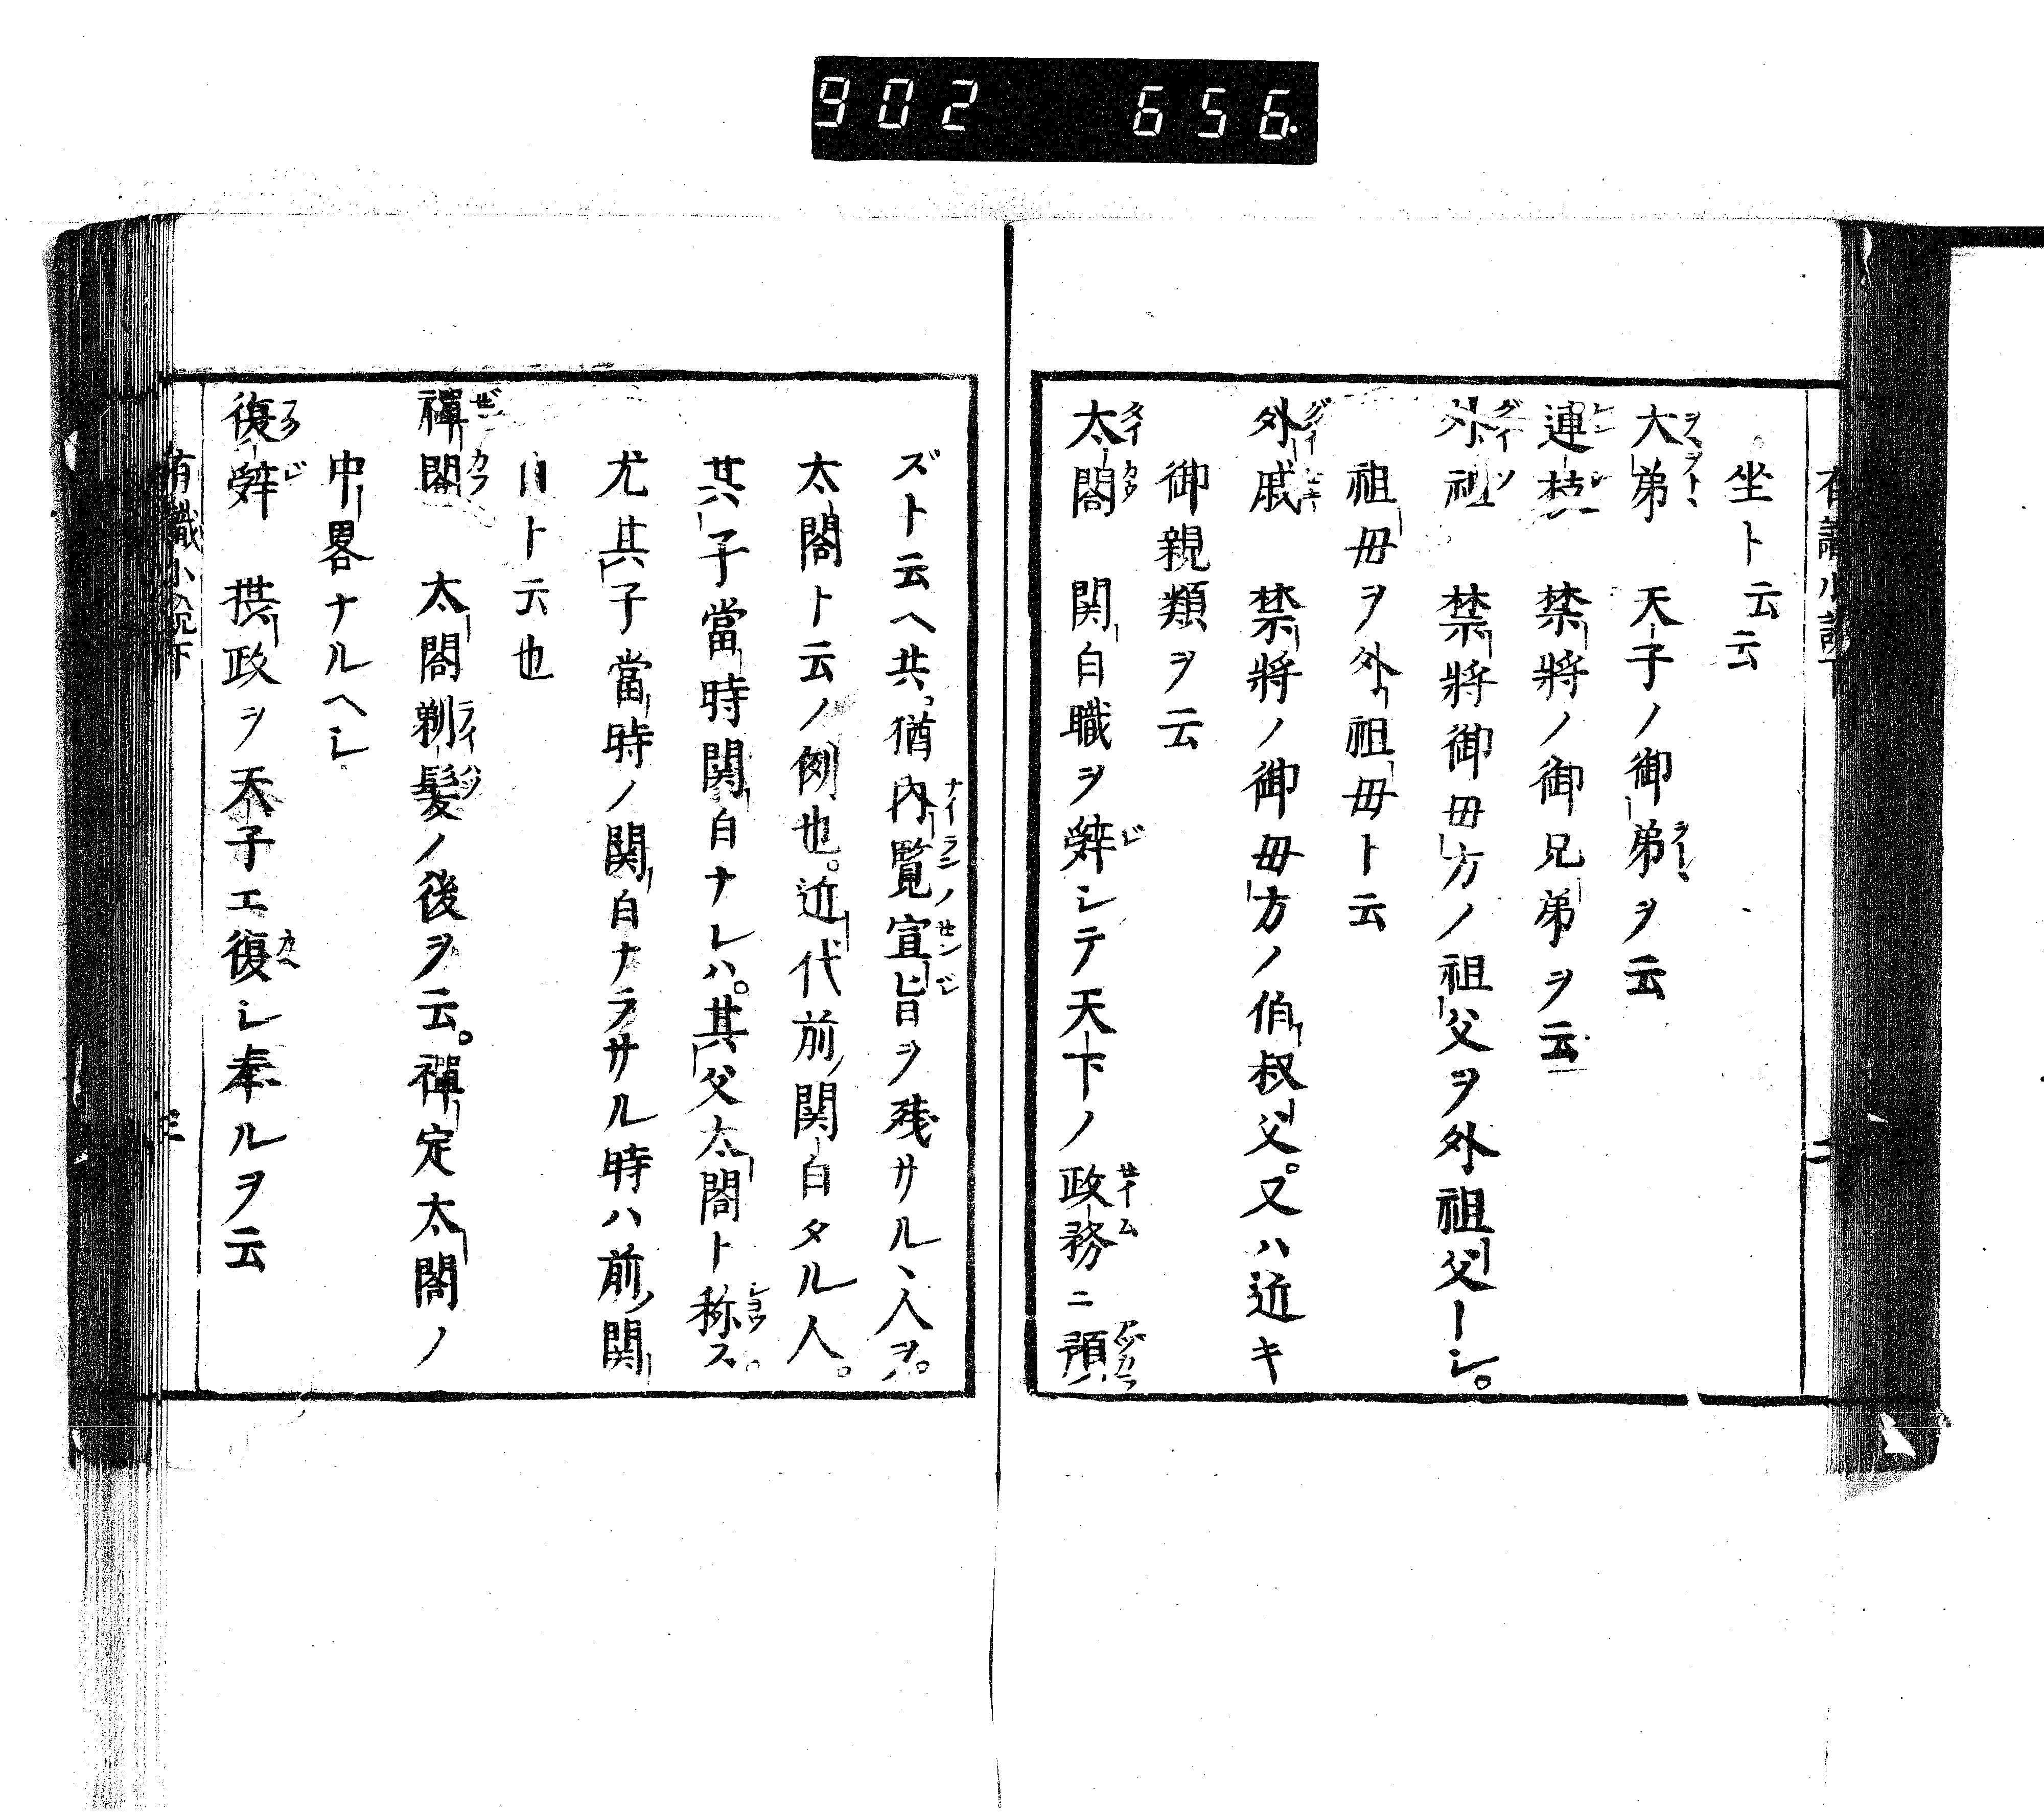 902 656
坐ト云云
大弟 天子ノ御弟ヲ云
連枝 禁將ノ御兄弟ヲ云
外祖 禁將御毋方ノ祖父ヲ外祖父ーシ。
祖毋ヲ外祖毋ト云
外戚 禁將ノ御毋方ノ伯叔父。又ハ近キ
御親類ヲ云
太閤 関白職ヲ辤シテ天下ノ政務ニ預
ズト云ヘ共猶内覧宣旨ヲ残サル丶人ヲ。
太閤ト云ノ例也。近代前関白タル人。
其子當時関白ナレハ。其父太閤ト称ス。
尤其子當時ノ関白ナラサル時ハ前関
白ト云也
禪閤 太閤剃髪ノ後ヲ云。禪定太閤ノ
中畧ナルヘシ
復辤 摂政ヲ天子エ復シ奉ルヲ云
有職小説下 三